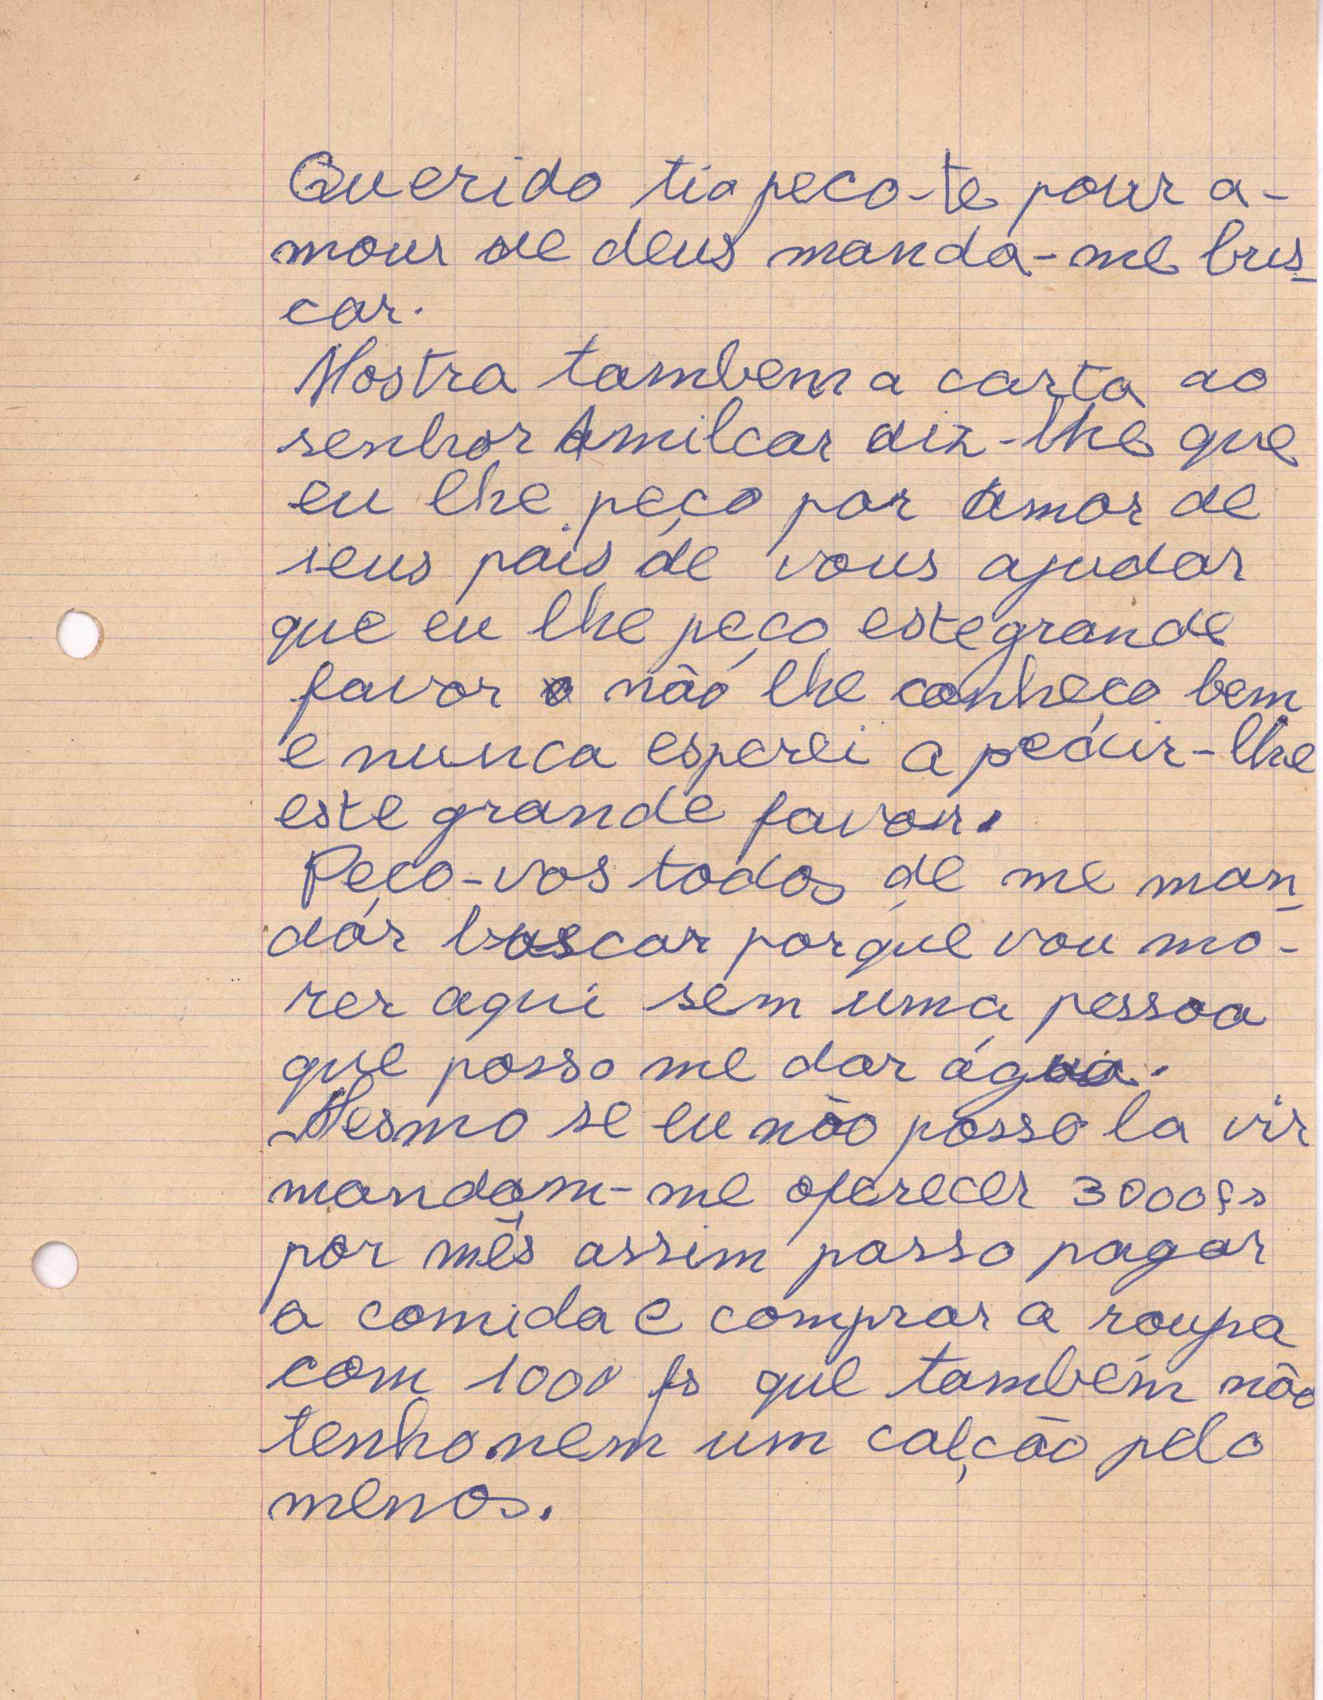 Querido tio peco-te pour a-
mour de deus manda-me bus-
car.
Mostra tambem a carta ao
senhor Amilcar diz-lhe que
eu lhe peço por amor de
seus pais de vous ajudar
que eu lhe peço este grande
favor não lhe conheço bem
e nunca esperei a pedir-lhe
este grande favor.
Peço-vos todos de me man-
dár buscar porque vou mo-
rer aqui sem uma pessoa
que posso me dar água.
Mesmo se eu não posso la vir
mandam-me oferecer 3000 fs
por mês assim posso pagar
a comida e comprar a roupa
com 1000 fs que também não
tenho nem um calção pelo
menos.